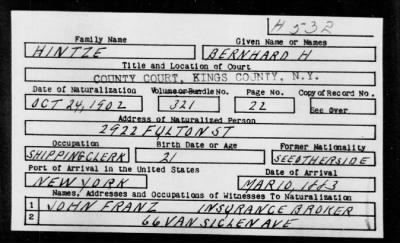 H 532
Family Name Given Name or Names
HINTZE BERNHARD H
Title and Location of Court
COUNTY COURT, KINGS COUNTY, N.Y.
Date of Naturalization Volume or Bundle No. Page No. Copy of Record No.
OCT 24, 1902 321 22 See Over
Address of Naturalized Person
2922 FULTON ST
Occupation Birth Date or Age Former Nationality
SHIPPING CLERK 21 SEE OTHER SIDE
Port of Arrival in the United States Date of Arrival
NEW YORK MAR 10, 1883
Names, Addresses and Occupations of Witnesses To Naturalization
1 JOHN FRANZ INSURANCE BROKER
2 66 VAN SICLEN AVE